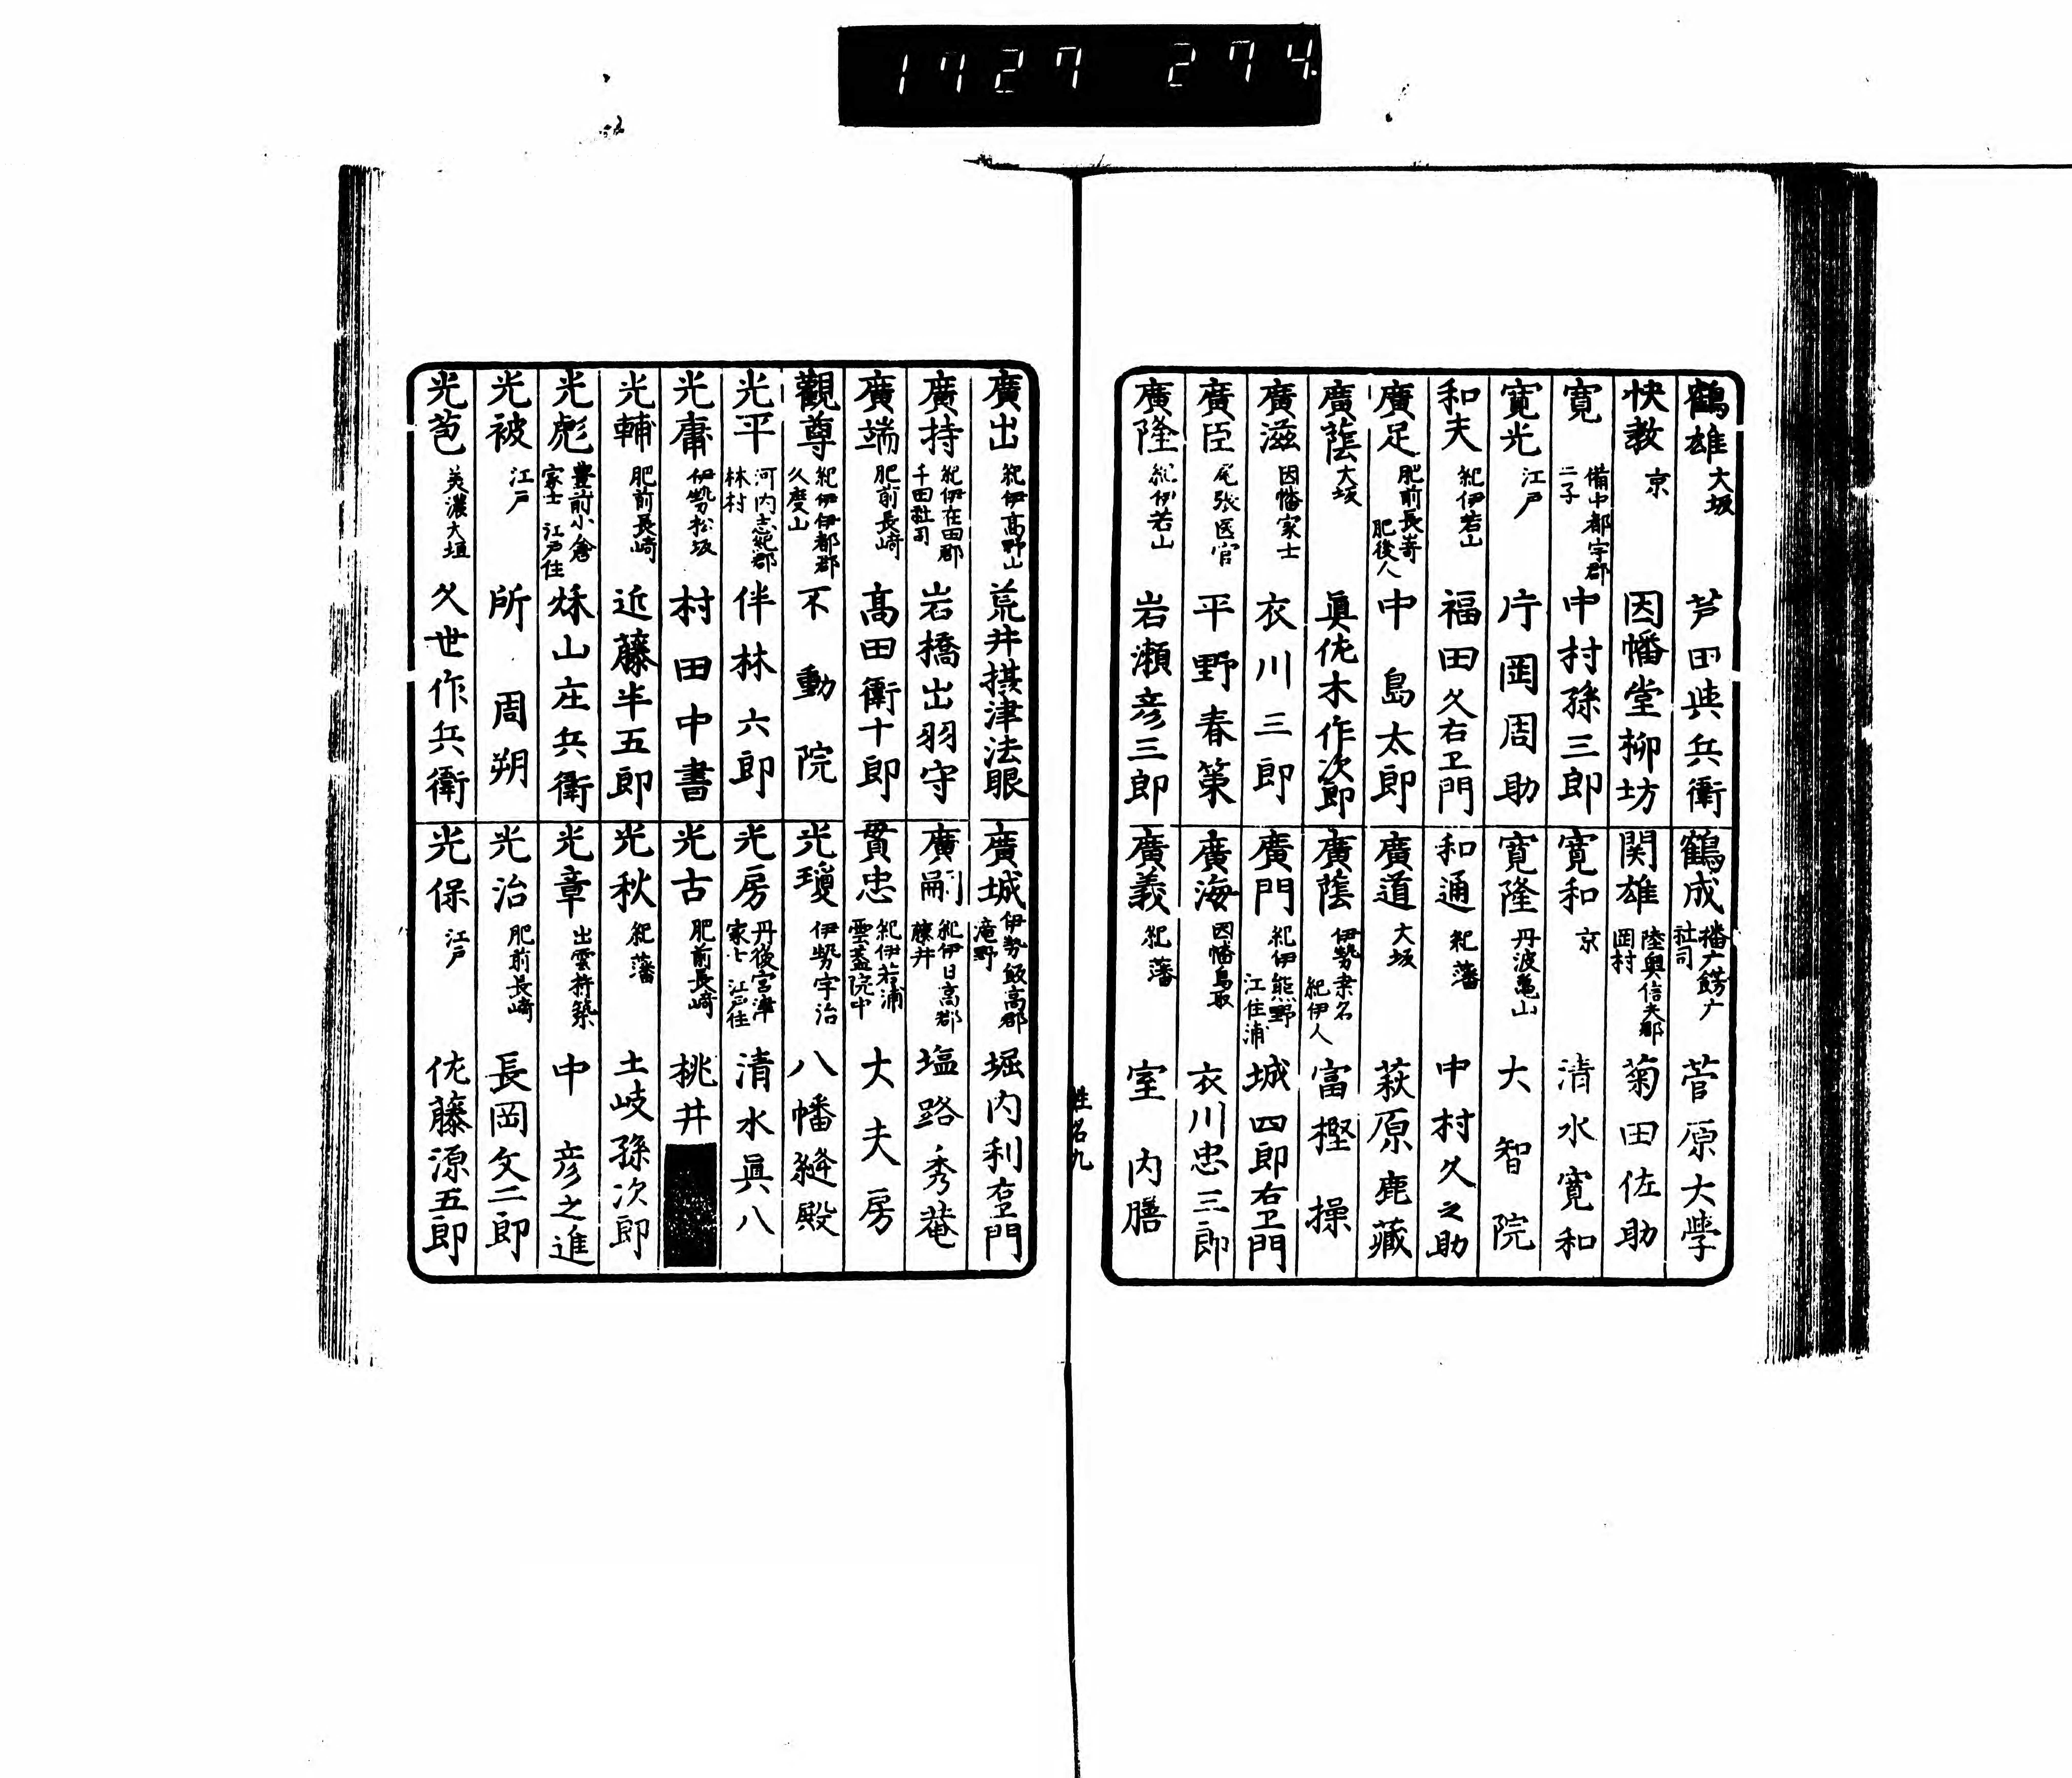 1727 274
鶴雄 大坂 芦田與兵衛
快教 京 因幡堂柳坊
寛 備中都宇郡二子 中村孫三郎
寛光 江戸 片岡周助
和夫 紀伊若山 福田久右卫門
廣足 肥前長嵜 肥後人 中島太郎
廣蔭 大坂 眞佐木作次郎
廣滋 因幡家士 衣川三郎
廣臣 尾張医官 平野春策
廣隆 紀伊若山 岩瀬彦三郎
鶴成 播广餝广社司 菅原大学
関雄 陸奥信夫郡岡村 菊田佐助
寛和 京 清水寛和
寛隆 丹波亀山 大智院
和通 紀藩 中村久之助
廣道 大坂 萩原鹿藏
廣蔭 伊勢桒名 紀伊人 富樫操
廣門 紀伊熊野江住浦 城四郎右卫門
廣海 因幡鳥取 衣川忠三郎
廣義 紀藩 室内膳
姓名九
廣出 紀伊高野山 荒井摂津法眼
廣持 紀伊在田郡千田社司 岩橋出羽守
廣端 肥前長崎 髙田衛十郎
觀尊 紀伊伊都郡久度山 不動院
光平 河内志紀郡林村 伴林六郎
光庸 伊勢松坂 村田中書
光輔 肥前長崎 近藤半五郎
光彪 豊前小倉家士 江戸住 秌山庄兵衛
光被 江戸 所周朔
光苞 美濃大垣 久世作兵衛
廣城 伊勢飯高郡滝野 堀内利右卫門
廣嗣 紀伊日高郡藤井 塩路秀菴
貫忠 紀伊若浦雲盖院中 大夫房
光瓊 伊勢宇治 八幡縫殿
光房 丹後宮津家士 江戸住 清水眞八
光古 肥前長崎 桃井
光秋 紀藩 土岐孫次郎
光章 出雲杵築 中彦之進
光治 肥前長崎 長岡文二郎
光保 江戸 佐藤源五郎